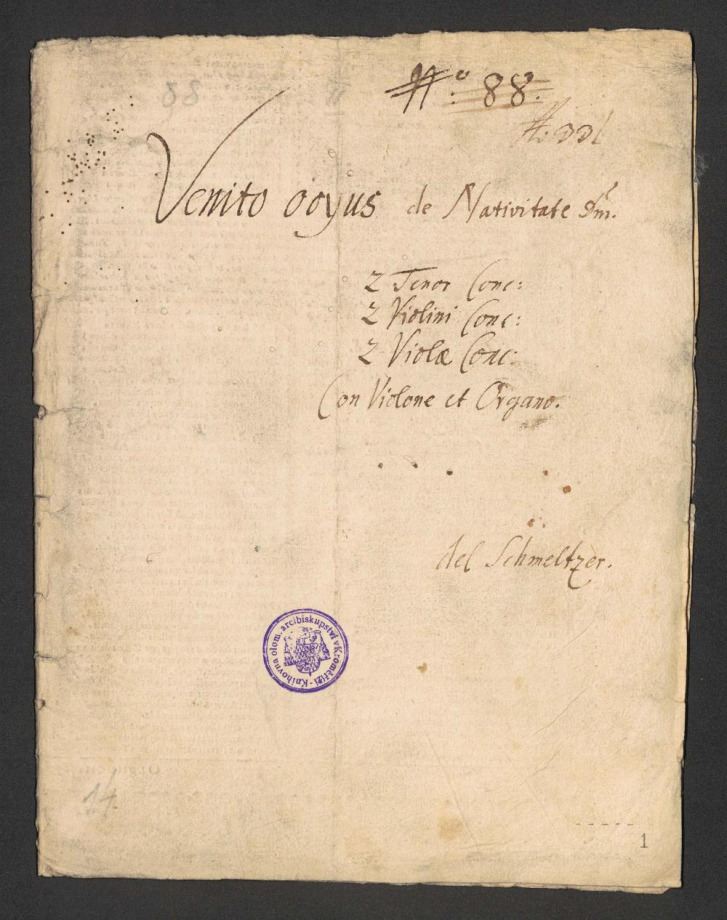 88
N.º 88.
Venito ocyus de Nativitate Dm̃.
2 Tenor Conc:
2 Violini Conc:
2 Violæ Conc:
Con Violone et Organo.
del Schmeltzer.
Knihovna olom. arcibiskupství v Kroměříži
14.
1